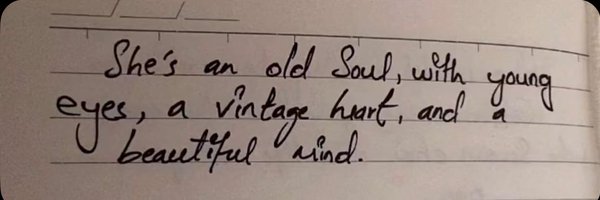 She's an old Soul, with young
eyes, a vintage heart, and a
beautiful mind.